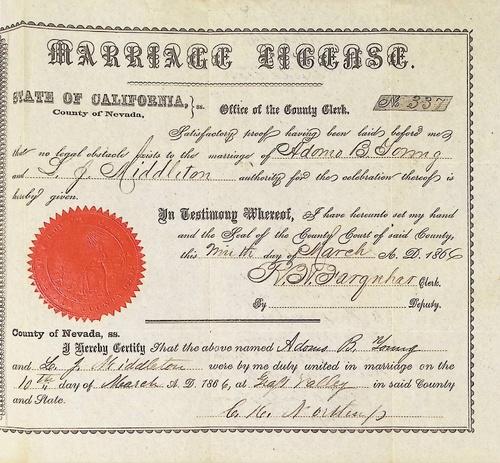 MARRIAGE LICENSE.
STATE OF CALIFORNIA, } ss. Office of the County Clerk. No 337
County of Nevada,
Satisfactory proof having been laid before me
that no legal obstacle exists to the marriage of Adoms B. Young
and L. J. Middleton authority for the celebration thereof is
hereby given.
In Testimony Whereof, I have hereunto set my hand
and the Seal of the County Court of said County,
this ninth day of March A. D. 1866
R. H. Farquhar Clerk.
By Deputy.
County of Nevada, ss.
I Hereby Certify That the above named Adoms B. Young
and L. J. Middleton were by me duly united in marriage on the
10th day of March A. D. 1866, at Valley in said County
and State.
C. C. Northup